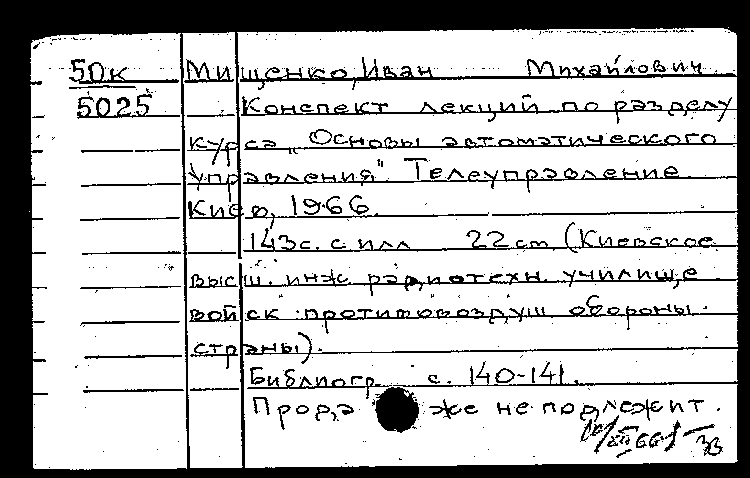 50к Мищенко, Иван Михайлович
5025 Конспект лекций по разделу
курса „Основы автоматического
управления". Телеуправление
Киев, 1966.
143с. с илл 22 cm (Киевское
высш. инж радиотехн. училище
войск противовоздуш обороны
страны).
Библиогр с. 140-141.
Продаже не подлежит.